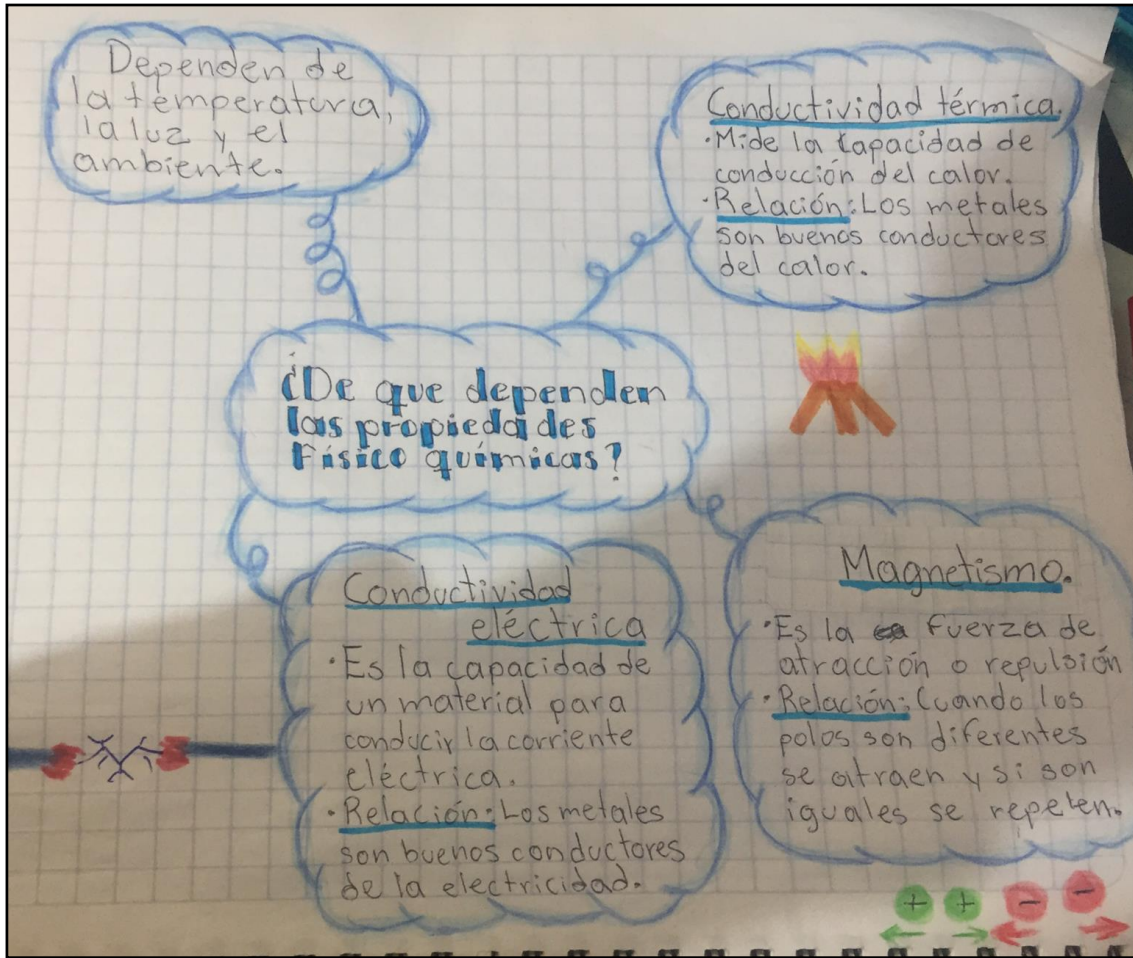 Dependen de
la temperatura,
la luz y el
ambiente.
Conductividad térmica.
·Mide la capacidad de
conducción del calor.
·Relación: Los metales
son buenos conductores
del calor.
¿De que dependen
las propiedades
Físico químicas?
Conductividad
eléctrica
·Es la capacidad de
un material para
conducir la corriente
eléctrica.
·Relación: Los metales
son buenos conductores
de la electricidad.
Magnetismo.
·Es la fuerza de
atracción o repulsión
·Relación: Cuando los
polos son diferentes
se atraen y si son
iguales se repelen.
+ + - -